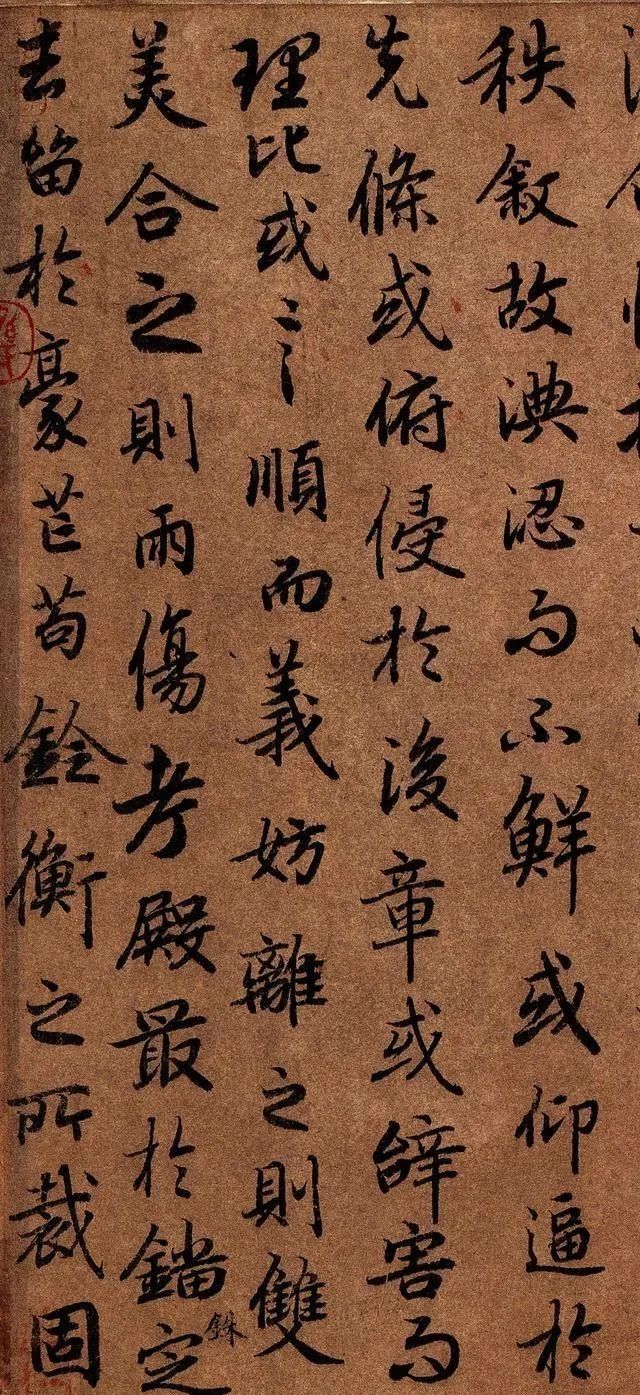 秩叙故淟涊而不鮮或仰逼於
先條或俯侵於後章或辭害而
理比或言順而義妨離之則雙
美合之則兩傷考殿最於錙銖定
去留於豪芒苟銓衡之所裁固